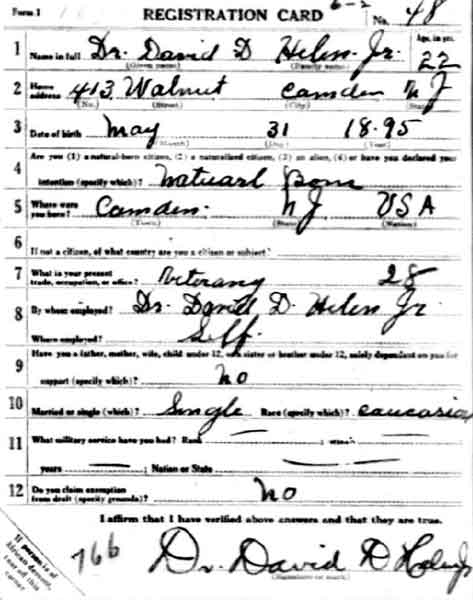 Form 1 REGISTRATION CARD 6-2 No. 48
1 Name in full Dr. David D Helm Jr. Age, in yrs. 22
(Given name) (Family name)
2 Home address 413 Walnut Camden N J
(No.) (Street) (City) (State)
3 Date of birth May 31 1895
(Month) (Day) (Year)
Are you (1) a natural-born citizen, (2) a naturalized citizen, (3) an alien, (4) or have you declared your
4 intention (specify which)? Natuarl Born
5 Where were you born? Camden N J USA
(Town) (State) (Nation)
6 If not a citizen, of what country are you a citizen or subject?
7 What is your present trade, occupation, or office? Veterany 28
8 By whom employed? Dr. David D. Helm Jr
Where employed? Self.
9 Have you a father, mother, wife, child under 12, or a sister or brother under 12, solely dependent on you for
support (specify which)? No
10 Married or single (which)? Single Race (specify which)? Caucasian
11 What military service have you had? Rank ; branch
years ; Nation or State
12 Do you claim exemption from draft (specify grounds)? No
I affirm that I have verified above answers and that they are true.
766 Dr. David D Helm Jr
(Signature or mark)
If person is of African descent, tear off this corner